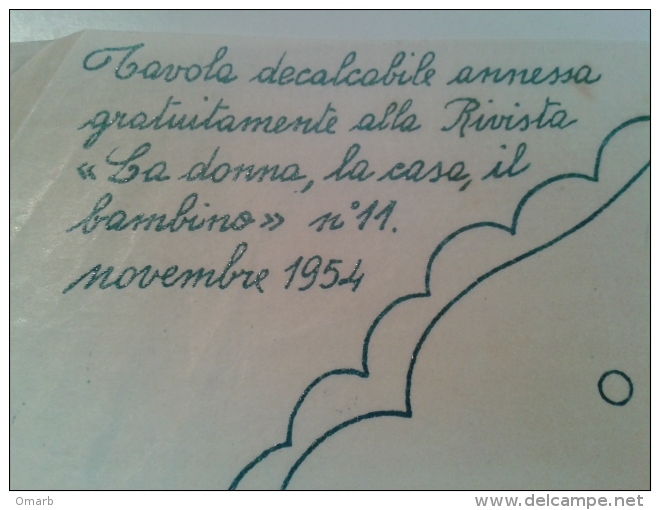 Tavola decalcabile annessa
gratuitamente alla Rivista
«La donna, la casa, il
bambino» n°11.
novembre 1954
Omarb
www.delcampe.net